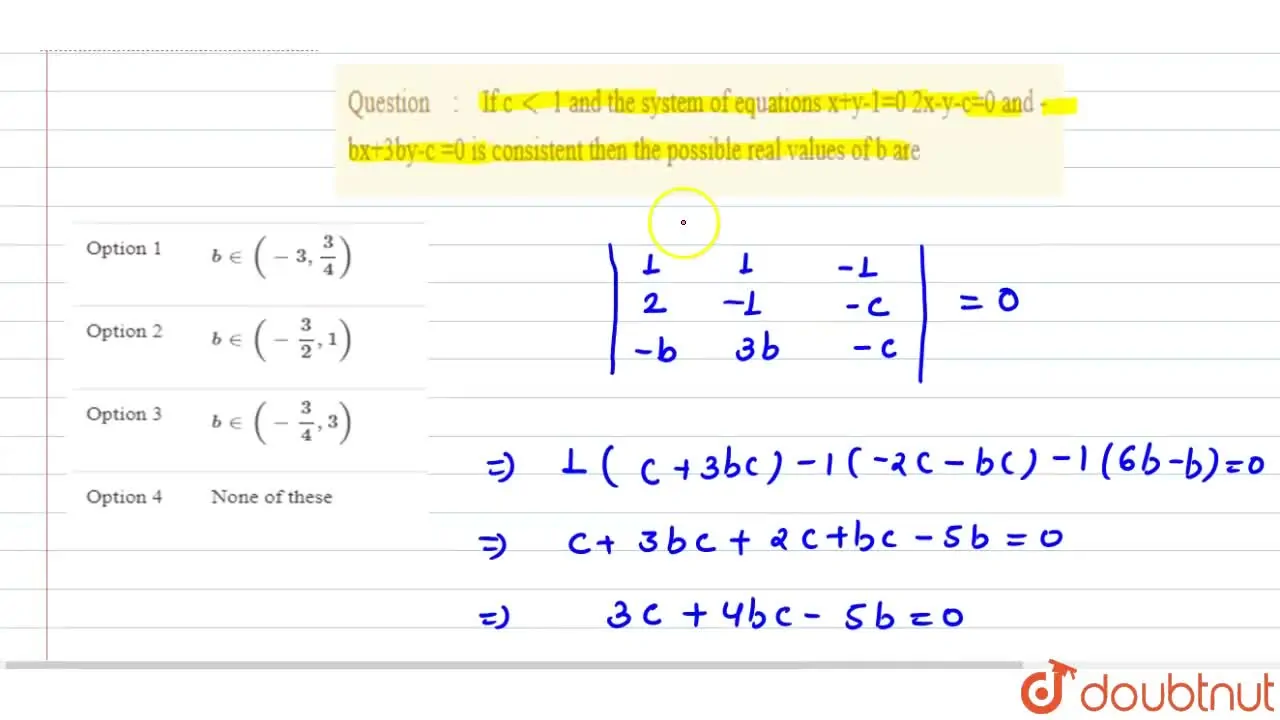 Question : If c < 1 and the system of equations x+y-1=0 2x-y-c=0 and -
bx+3by-c =0 is consistent then the possible real values of b are
Option 1 b ∈ (-3, 3/4)
Option 2 b ∈ (-3/2, 1)
Option 3 b ∈ (-3/4, 3)
Option 4 None of these
| 1 1 -1 |
| 2 -1 -c | = 0
| -b 3b -c |
⇒) 1 ( c + 3bc) - 1 (-2c - bc) - 1 (6b - b) = 0
⇒) c + 3bc + 2c + bc - 5b = 0
⇒) 3c + 4bc - 5b = 0
doubtnut